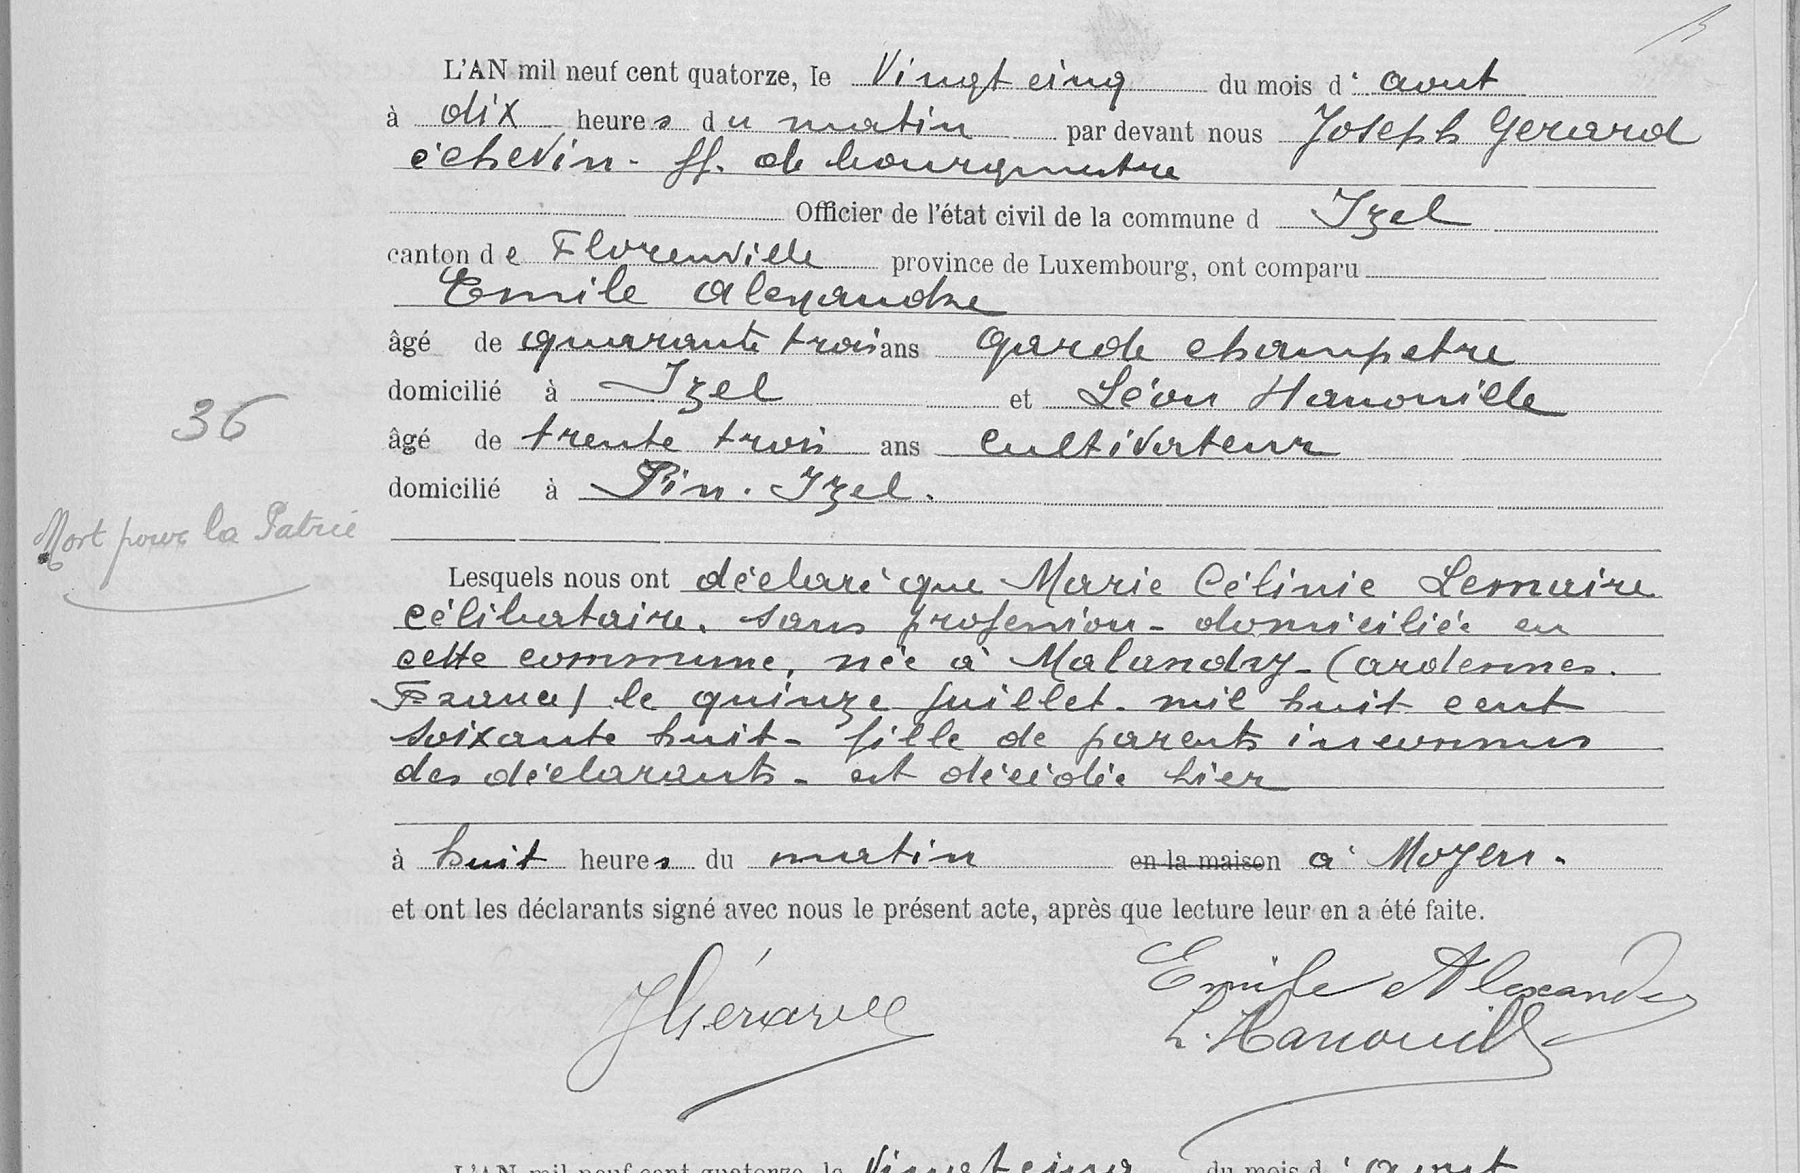 L'AN mil neuf cent quatorze, le Vingt cinq du mois d' aout
à dix heures du matin par devant nous Joseph Gerard
échevin - ff. de bourgmestre
Officier de l'état civil de la commune d Izel
canton de Florenville province de Luxembourg, ont comparu
Emile Alexandre
âgé de quarante trois ans garde champetre
domicilié à Izel et Léon Hanouille
36
âgé de trente trois ans cultivateur
domicilié à Pin-Izel.
Mort pour la Patrie
Lesquels nous ont déclaré que Marie Célinie Lemaire
célibataire, sans profession - domiciliée en
cette commune, née à Malandry - (Ardennes.
France) le quinze juillet - mil huit cent
soixante huit - fille de parents inconnus
des déclarants - est décédée hier
à huit heures du matin en la maison à Moyen.
et ont les déclarants signé avec nous le présent acte, après que lecture leur en a été faite.
Emile Alexandre
JGérard
L. Hanouille
L'AN mil neuf cent quatorze, le Vingt cinq du mois d' aout